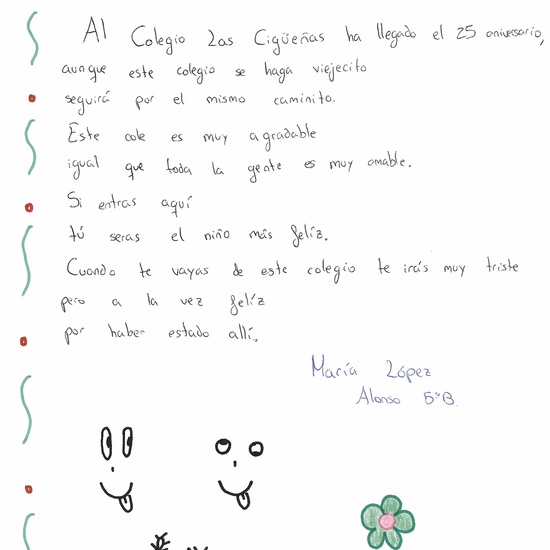 Al Colegio Las Cigüeñas ha llegado el 25 aniversario,
aunque este colegio se haga viejecito
seguirá por el mismo caminito.
Este cole es muy agradable
igual que toda la gente es muy amable.
Si entras aquí
tú seras el niño más felíz.
Cuando te vayas de este colegio te irás muy triste
pero a la vez felíz
por haber estado allí.
María López
Alonso 5ºB.